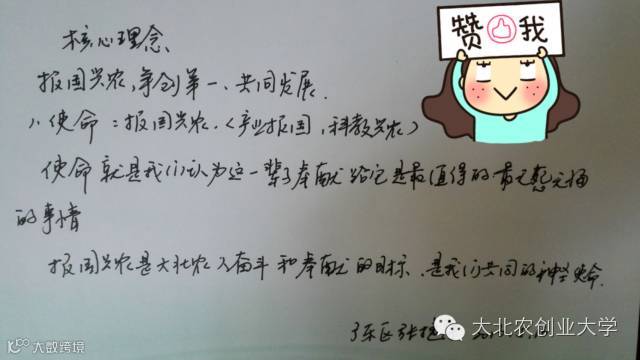 核心理念
赞 我
报国兴农,争创第一、共同发展.
1、使命:报国兴农.(产业报国,科教兴农)
使命就是我们认为这一辈子奉献给它是最值得的最无怨无悔
的事情
报国兴农是大北农人奋斗和奉献的目标.是我们共同的神圣使命.
东区张
大北农创业大学
10100 大数跨境